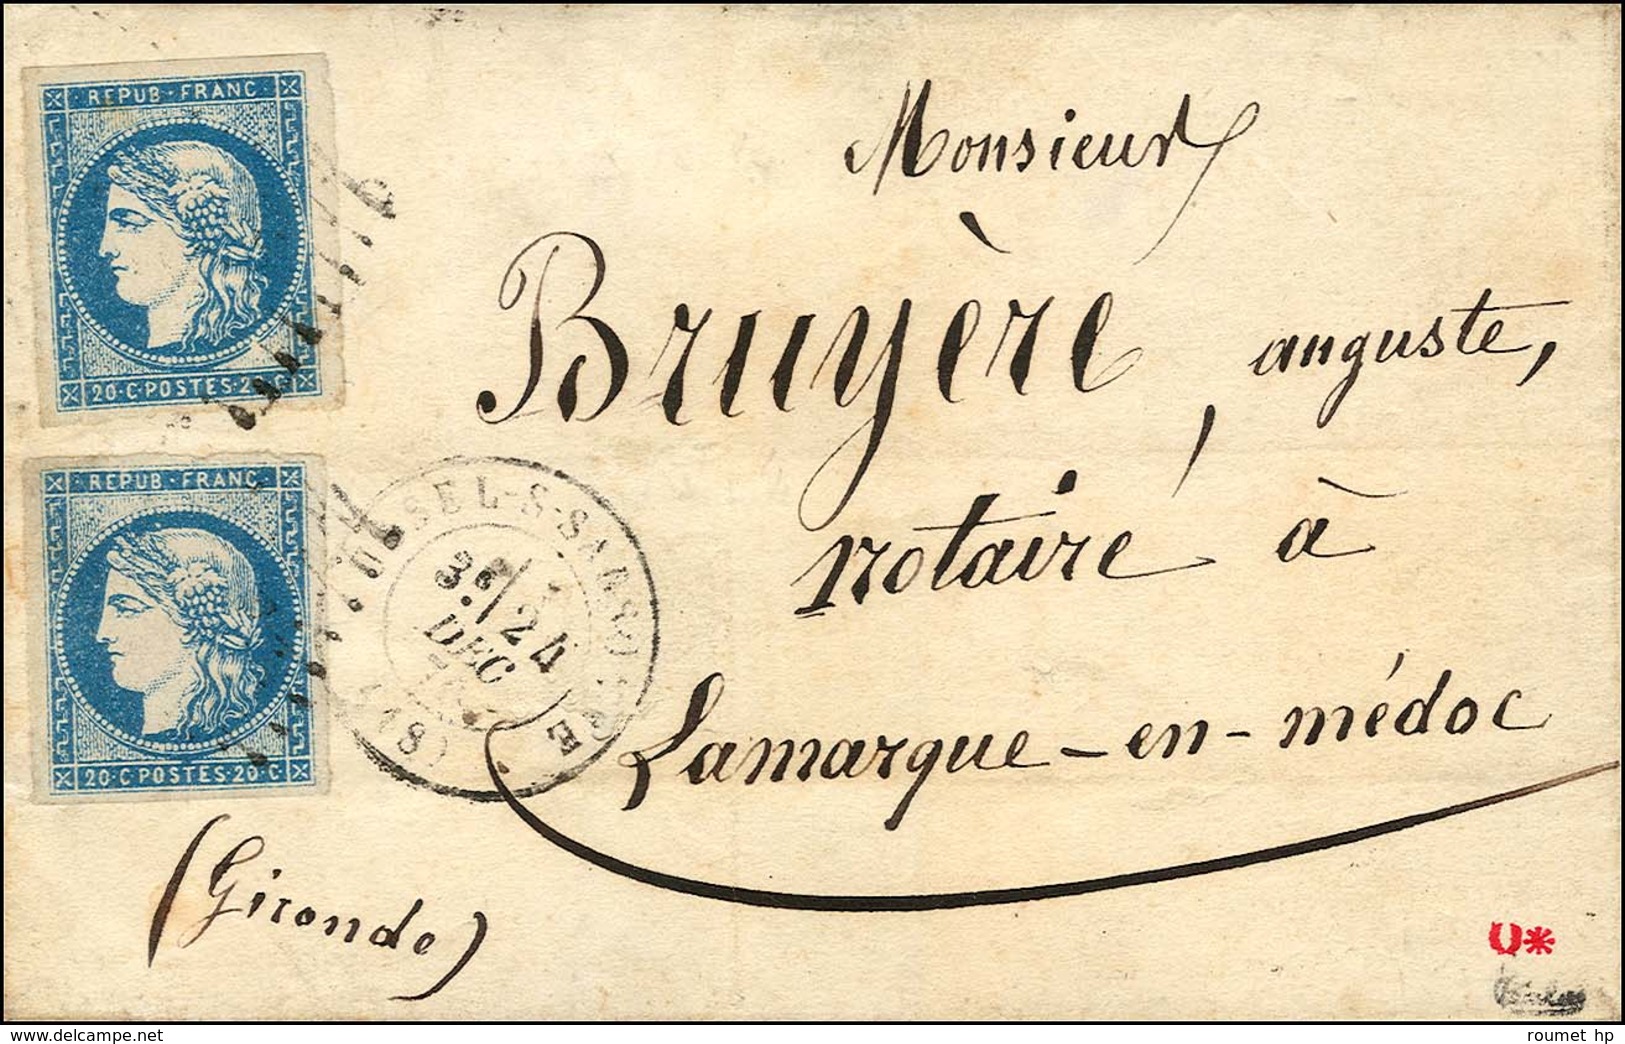 REPUB·FRANC
20·C·POSTES·2
REPUB·FRANC
20·C·POSTES·20·C
Monsieur
Bruyère, auguste,
notaire à
Lamarque-en-médoc
(Gironde)
SEL-S-SA
3ᵉ/
24
DEC
(18)
U*
delcampe.net
roumet hp